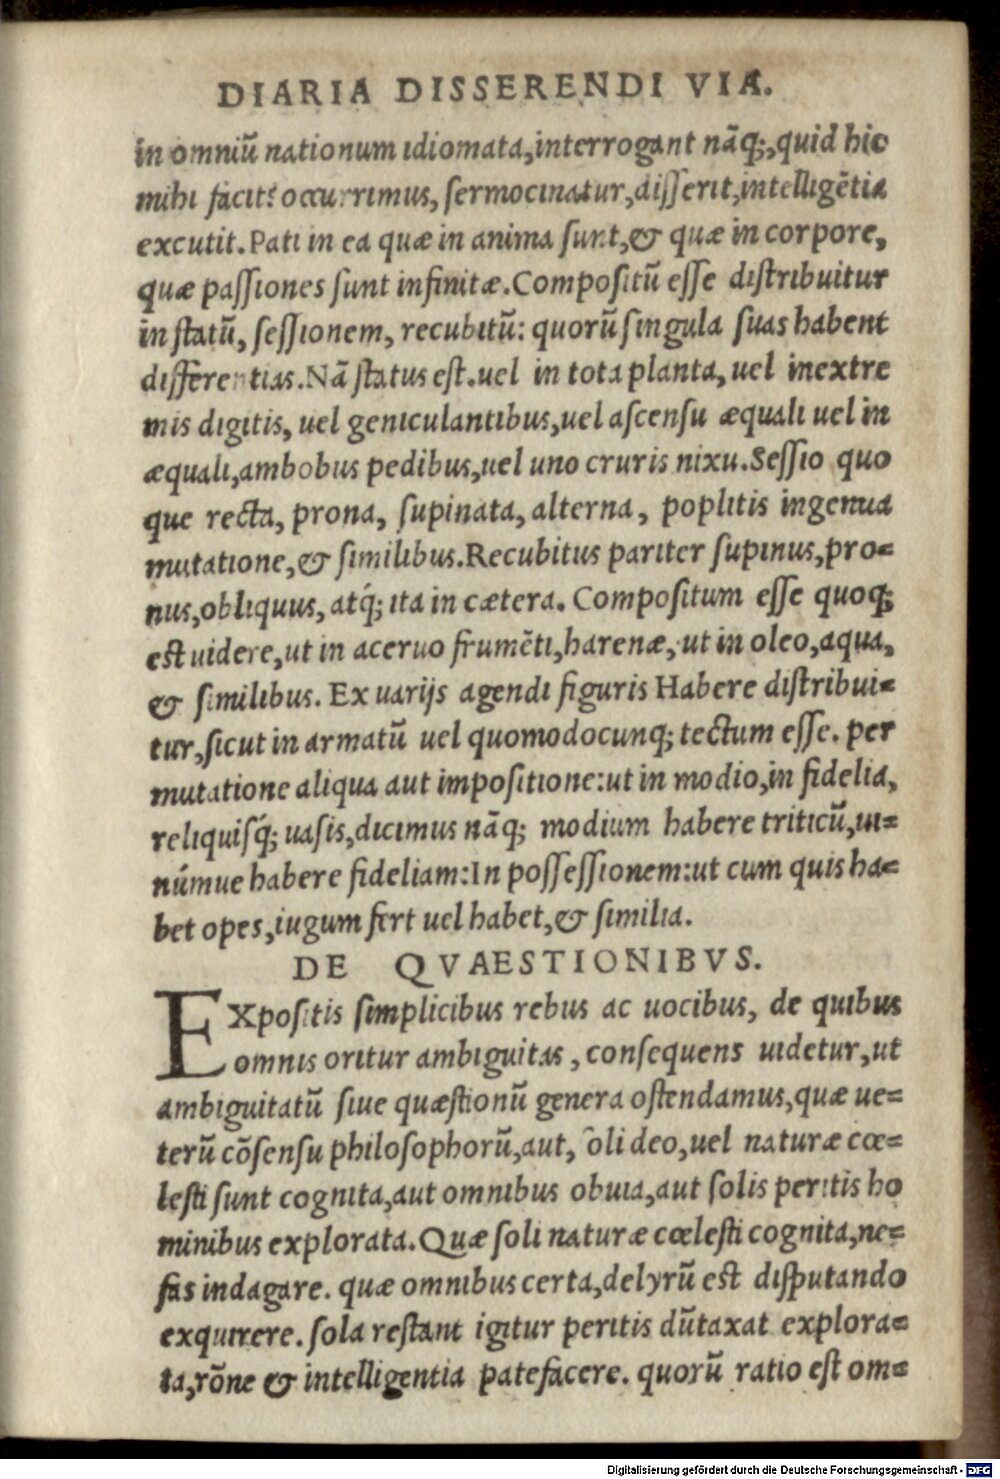 DIARIA DISSERENDI VIA.
in omniũ nationum idiomata,interrogant nãq;,quid hic
mihi facit? occurrimus, sermocinatur,disserit,intelligẽtia
excutit. Pati in ea quæ in anima sunt,& quæ in corpore,
quæ passiones sunt infinitæ. Compositũ esse distribuitur
in statũ, sessionem, recubitũ: quorũ singula suas habent
differentias. Nã status est. uel in tota planta, uel in extre
mis digitis, uel geniculantibus,uel ascensu æquali uel in
æquali,ambobus pedibus,uel uno cruris nixu. Sessio quo
que recta, prona, supinata, alterna, poplitis ingenua
mutatione,& similibus. Recubitus pariter supinus, pro=
nus,obliquus, atq́; ita in cætera. Compositum esse quoq;
est uidere,ut in aceruo frumẽti,harenæ, ut in oleo,aqua,
& similibus. Ex uarijs agendi figuris Habere distribui=
tur,sicut in armatũ uel quomodocunq; tectum esse. per
mutatione aliqua aut impositione:ut in modio,in fidelia,
reliquisq́; uasis,dicimus nãq; modium habere triticũ,ui=
númue habere fideliam:In possessionem:ut cum quis ha=
bet opes,iugum fert uel habet,& similia.
DE QVAESTIONIBVS.
EXpositis simplicibus rebus ac uocibus, de quibus
omnis oritur ambiguitas, consequens uidetur,ut
ambiguitatũ siue quæstionũ genera ostendamus,quæ ue=
terũ cõsensu philosophorũ,aut, soli deo,uel naturæ cœ=
lesti sunt cognita,aut omnibus obuia,aut solis peritis ho
minibus explorata. Quæ soli naturæ cœlesti cognita,ne=
fas indagare. quæ omnibus certa,delyrũ est disputando
exquirere. sola restant igitur peritis dũtaxat explora=
ta,rõne & intelligentia patefacere. quorũ ratio est om=
Digitalisierung gefördert durch die Deutsche Forschungsgemeinschaft - DFG